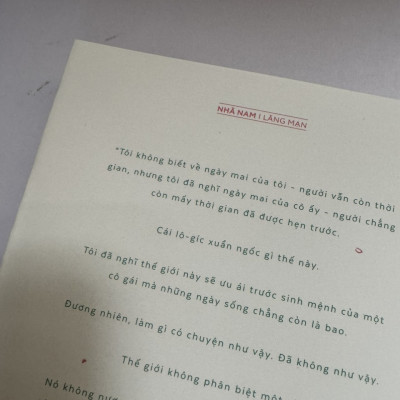 NHÃ NAM | LÃNG MẠN
"Tôi không biết về ngày mai của tôi - người vẫn còn thời
gian, nhưng tôi đã nghĩ ngày mai của cô ấy - người chẳng
còn mấy thời gian đã được hẹn trước.
Cái lô-gíc xuẩn ngốc gì thế này.
Tôi đã nghĩ thế giới này sẽ ưu ái trước sinh mệnh của một
cô gái mà những ngày sống chẳng còn là bao.
Đương nhiên, làm gì có chuyện như vậy. Đã không như vậy.
Thế giới không phân biệt một
Nó không